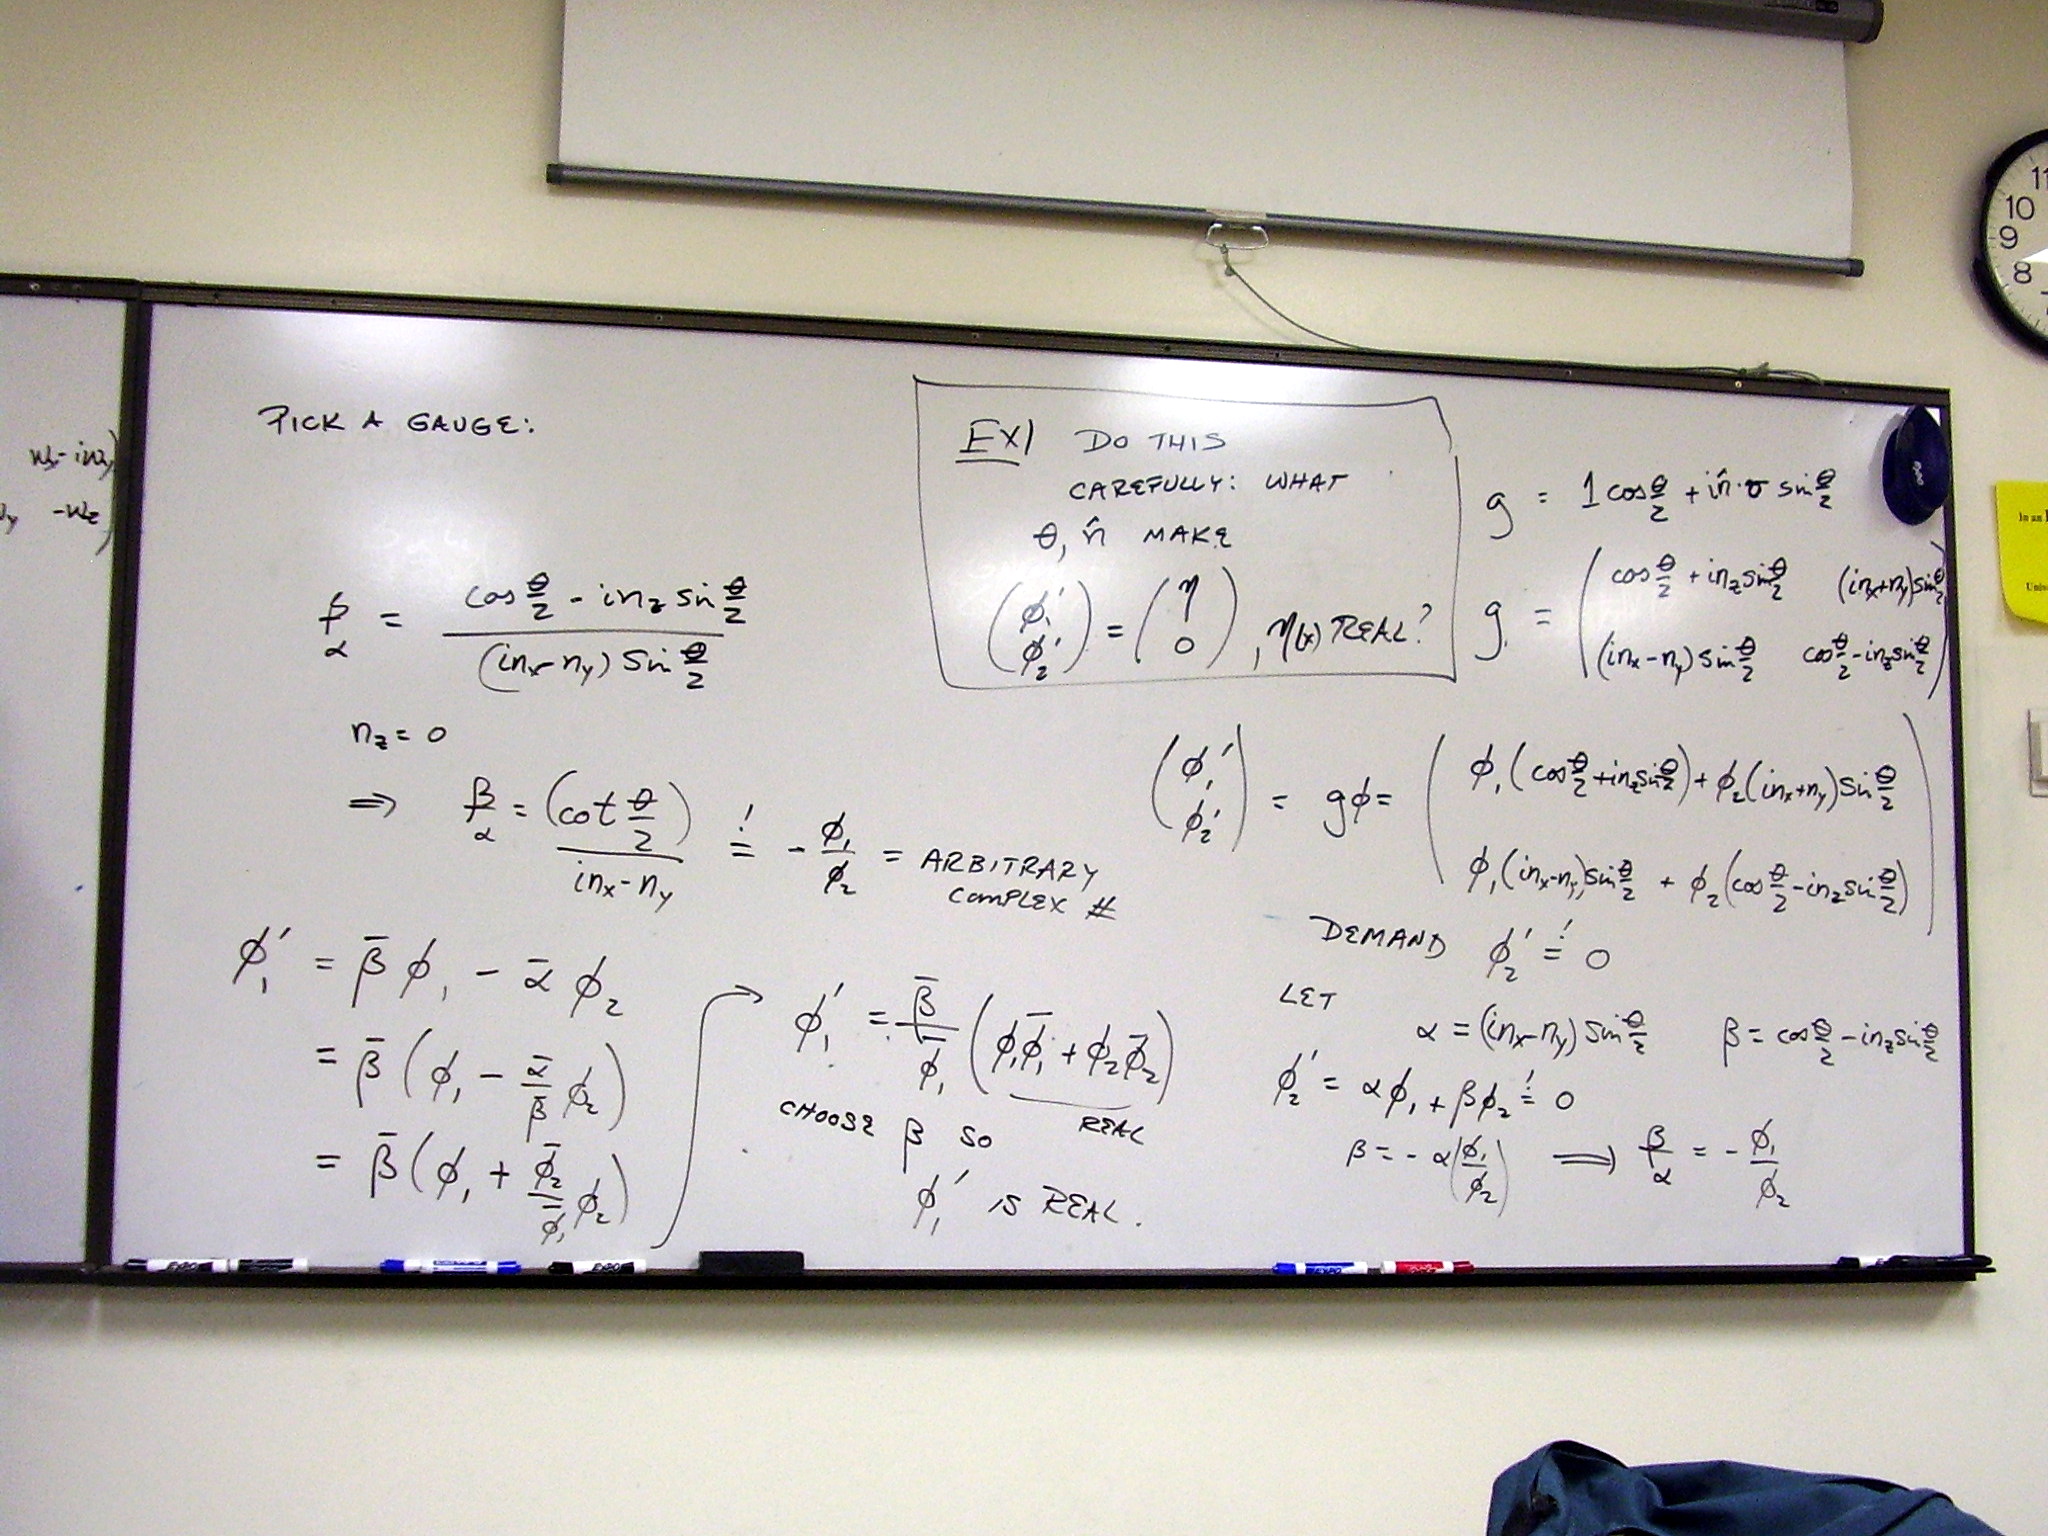 11
10
9
8
-w_z
PICK A GAUGE:
β/α = (cos θ/2 - i n_z sin θ/2) / ((i n_x - n_y) sin θ/2)
n_z = 0
⟹ β/α = (cot θ/2) / (i n_x - n_y) =! - φ₁/φ₂ = ARBITRARY
COMPLEX #
φ₁' = β̄ φ₁ - ᾱ φ₂
= β̄ (φ₁ - ᾱ/β̄ φ₂)
= β̄ (φ₁ + φ̄₂/φ̄₁ φ₂)
φ₁' = β̄/φ̄₁ (φ₁φ̄₁ + φ₂φ̄₂)
REAL
CHOOSE β SO
φ₁' IS REAL.
EX) DO THIS
CAREFULLY: WHAT
θ, n̂ MAKE
(φ₁' ; φ₂') = (η ; 0), η(x) REAL?
g = 1 cos θ/2 + i n̂·σ sin θ/2
g = ( cos θ/2 + i n_z sin θ/2   (i n_x + n_y) sin θ/2
(i n_x - n_y) sin θ/2   cos θ/2 - i n_z sin θ/2 )
(φ₁' ; φ₂') = gφ = ( φ₁(cos θ/2 + i n_z sin θ/2) + φ₂(i n_x + n_y) sin θ/2
φ₁(i n_x - n_y) sin θ/2 + φ₂(cos θ/2 - i n_z sin θ/2) )
DEMAND φ₂' =! 0
LET
α = (i n_x - n_y) sin θ/2   β = cos θ/2 - i n_z sin θ/2
φ₂' = αφ₁ + βφ₂ =! 0
β = - α(φ₁/φ₂) ⟹ β/α = - φ₁/φ₂
EXPO